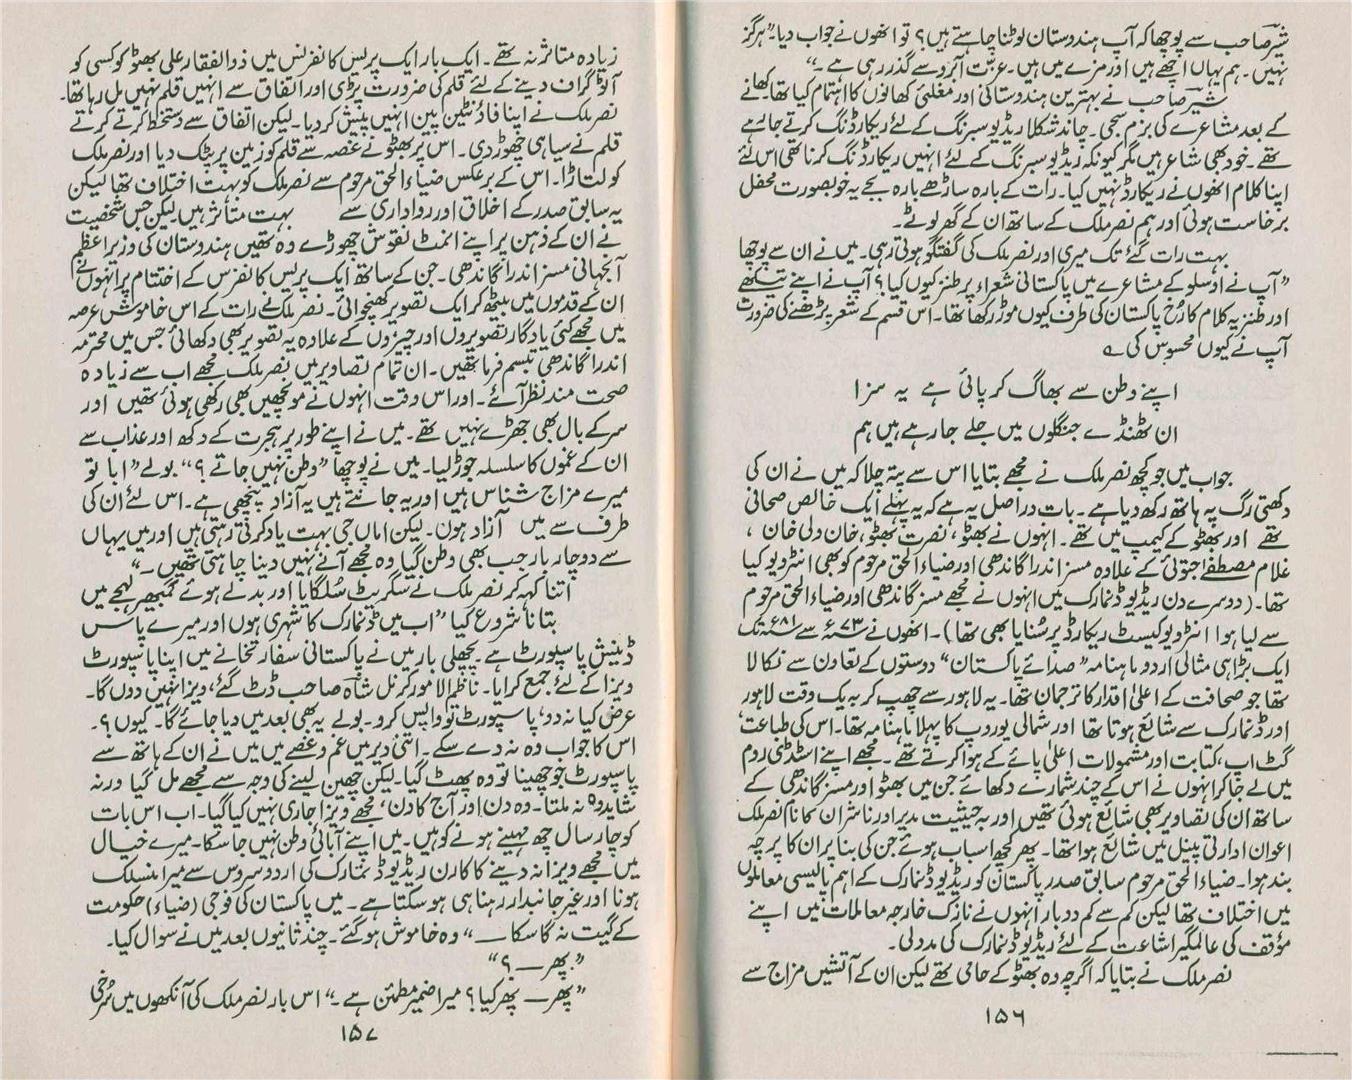 شیر صاحب سے پوچھا کہ آپ ہندوستان لوٹنا چاہتے ہیں؟ تو انھوں نے جواب دیا۔ ”ہرگز
نہیں۔ ہم یہاں اچھے ہیں اور مزے میں ہیں۔ عزّت آبرو سے گذر رہی ہے۔“
شیر صاحب نے بہترین ہندوستانی اور مغلئی کھانوں کا اہتمام کیا تھا۔ کھانے
کے بعد مشاعرے کی بزم سجی۔ چاند شکلا ریڈیو سبرنگ کے لئے ریکارڈنگ کرتے جا رہے
تھے۔ خود بھی شاعر ہیں مگر کیونکہ ریڈیو سبرنگ کے لئے انہیں ریکارڈنگ کرنا تھی اس لئے
اپنا کلام انھوں نے ریکارڈ نہیں کیا۔ رات کے بارہ ساڑھے بارہ بجے یہ خوبصورت محفل
برخاست ہوئی اور ہم نصر ملک کے ساتھ ان کے گھر لوٹے۔
بہت رات گئے تک میری اور نصر ملک کی گفتگو ہوتی رہی۔ میں نے ان سے پوچھا
”آپ نے اوسلو کے مشاعرے میں پاکستانی شعراء پر طنز کیوں کیا؟ آپ نے اپنے تیکھے
اور طنزیہ کلام کا رُخ پاکستان کی طرف کیوں موڑ رکھا تھا۔ اس قسم کے شعر پڑھنے کی ضرورت
آپ نے کیوں محسوس کی ؎
اپنے وطن سے بھاگ کر پائی ہے یہ سزا
ان ٹھنڈے جنگلوں میں جلے جا رہے ہیں ہم
جواب میں جو کچھ نصر ملک نے مجھے بتایا اس سے پتہ چلا کہ میں نے ان کی
دکھتی رگ پہ ہاتھ رکھ دیا ہے۔ بات دراصل یہ ہے کہ یہ پہلے ایک خالص صحافی
تھے اور بھٹو کے کیمپ میں تھے۔ انہوں نے بھٹو، نصرت بھٹو، خان ولی خان،
غلام مصطفےٰ جتوئی کے علاوہ مسز اندرا گاندھی اور ضیاء الحق مرحوم کو بھی انٹرویو کیا
تھا۔ (دوسرے دن ریڈیو ڈنمارک میں انہوں نے مجھے مسز گاندھی اور ضیاء الحق مرحوم
سے لیا ہوا انٹرویو کیسٹ ریکارڈ پر سُنایا بھی تھا)۔ انھوں نے ۷۳ء سے ۸۱ء تک
ایک بڑا ہی مثالی اردو ماہنامہ ”صدائے پاکستان“ دوستوں کے تعاون سے نکالا
تھا جو صحافت کے اعلیٰ اقدار کا ترجمان تھا۔ یہ لاہور سے چھپ کر بہ یک وقت لاہور
اور ڈنمارک سے شائع ہوتا تھا اور شمالی یوروپ کا پہلا ماہنامہ تھا۔ اس کی طباعت،
گٹ اپ، کتابت اور مشمولات اعلیٰ پائے کے ہوا کرتے تھے۔ مجھے اپنے اسٹڈی روم
میں لے جا کر انہوں نے اس کے چند شمارے دکھائے جن میں بھٹو اور مسز گاندھی کے
ساتھ ان کی تصاویر بھی شائع ہوئی تھیں اور بہ حیثیت مدیر اور ناشر ان کا نام نصر ملک
اعوان ادارتی پینل میں شائع ہوا تھا۔ پھر کچھ اسباب ہوئے جن کی بنا پر ان کا پرچہ
بند ہوا۔ ضیاء الحق مرحوم سابق صدر پاکستان کو ریڈیو ڈنمارک کے اہم پالیسی معاملوں
میں اختلاف تھا لیکن کم سے کم دو بار انہوں نے نازک خارجہ معاملات میں اپنے
مؤقف کی عالمگیر اشاعت کے لئے ریڈیو ڈنمارک کی مدد لی۔
نصر ملک نے بتایا کہ اگرچہ وہ بھٹو کے حامی تھے لیکن ان کے آتشیں مزاج سے
۱۵۶
زیادہ متاثر نہ تھے۔ ایک بار ایک پریس کانفرنس میں ذوالفقار علی بھٹو کو کسی کو
آٹوگراف دینے کے لئے قلم کی ضرورت پڑی اور اتفاق سے انہیں قلم نہیں مل رہا تھا۔
نصر ملک نے اپنا فاؤنٹین پین انہیں پیش کر دیا۔ لیکن اتفاق سے دستخط کرتے کرتے
قلم نے سیاہی چھوڑ دی۔ اس پر بھٹو نے غصہ سے قلم کو زمین پر پٹک دیا اور نصر ملک
کو لتاڑا۔ اس کے برعکس ضیاء الحق مرحوم سے نصر ملک کو بہت اختلاف تھا لیکن
یہ سابق صدر کے اخلاق اور رواداری سے بہت متأثر ہیں لیکن جس شخصیت
نے ان کے ذہن پر اپنے انمٹ نقوش چھوڑے وہ تھیں ہندوستان کی وزیر اعظم
آنجہانی مسز اندرا گاندھی۔ جن کے ساتھ ایک پریس کانفرنس کے اختتام پر انہوں نے
ان کے قدموں میں بیٹھ کر ایک تصویر کھنچوائی۔ نصر ملک نے رات کے اس خاموش عرصہ
میں مجھے کئی یادگار تصویروں اور چیزوں کے علاوہ یہ تصویر بھی دکھائی جس میں محترمہ
اندرا گاندھی تبسم فرما تھیں۔ ان تمام تصاویر میں نصر ملک مجھے اب سے زیادہ
صحت مند نظر آئے۔ اور اس وقت انہوں نے مونچھیں بھی رکھی ہوئی تھیں اور
سر کے بال بھی جھڑے نہیں تھے۔ میں نے اپنے طور پر ہجرت کے دکھ اور عذاب سے
ان کے غموں کا سلسلہ جوڑ لیا۔ میں نے پوچھا ”وطن نہیں جاتے؟“ بولے ”ابا تو
میرے مزاج شناس ہیں اور یہ جانتے ہیں یہ آزاد پنچھی ہے۔ اس لئے ان کی
طرف سے میں آزاد ہوں۔ لیکن اماں جی بہت یاد کرتی رہتی ہیں اور میں یہاں
سے دو چار بار جب بھی وطن گیا وہ مجھے آنے نہیں دینا چاہتی تھیں۔“
اتنا کہہ کر نصر ملک نے سگریٹ سُلگایا اور بدلے ہوئے گمبھیر لہجے میں
بتانا شروع کیا ”اب میں ڈنمارک کا شہری ہوں اور میرے پاس
ڈینش پاسپورٹ ہے۔ پچھلی بار میں نے پاکستانی سفارتخانے میں اپنا پاسپورٹ
ویزا کے لئے جمع کرایا۔ ناظم الامور کرنل شاہ صاحب ڈٹ گئے، ویزا نہیں دوں گا۔
عرض کیا نہ دو، پاسپورٹ تو واپس کرو۔ بولے یہ بھی بعد میں دیا جائے گا۔ کیوں؟۔
اس کا جواب وہ نہ دے سکے۔ اتنی دیر میں غم و غصے میں میں نے ان کے ہاتھ سے
پاسپورٹ جو چھینا تو وہ پھٹ گیا۔ لیکن چھین لینے کی وجہ سے مجھے مل گیا ورنہ
شاید وہ نہ ملتا۔ وہ دن اور آج کا دن، مجھے ویزا جاری نہیں کیا گیا۔ اب اس بات
کو چار سال چھ مہینے ہونے کو ہیں۔ میں اپنے آبائی وطن نہیں جا سکا۔ میرے خیال
میں مجھے ویزا نہ دینے کا کارن ریڈیو ڈنمارک کی اردو سروس سے میرا منسلک
ہونا اور غیر جانبدار رہنا ہی ہو سکتا ہے۔ میں پاکستان کی فوجی (ضیاء) حکومت
کے گیت نہ گا سکا —“ وہ خاموش ہو گئے۔ چند ثانیوں بعد میں نے سوال کیا۔
”پھر —؟“
”پھر — پھر کیا؟ میرا ضمیر مطمئن ہے۔“ اس بار نصر ملک کی آنکھوں میں سُرخی
۱۵۷